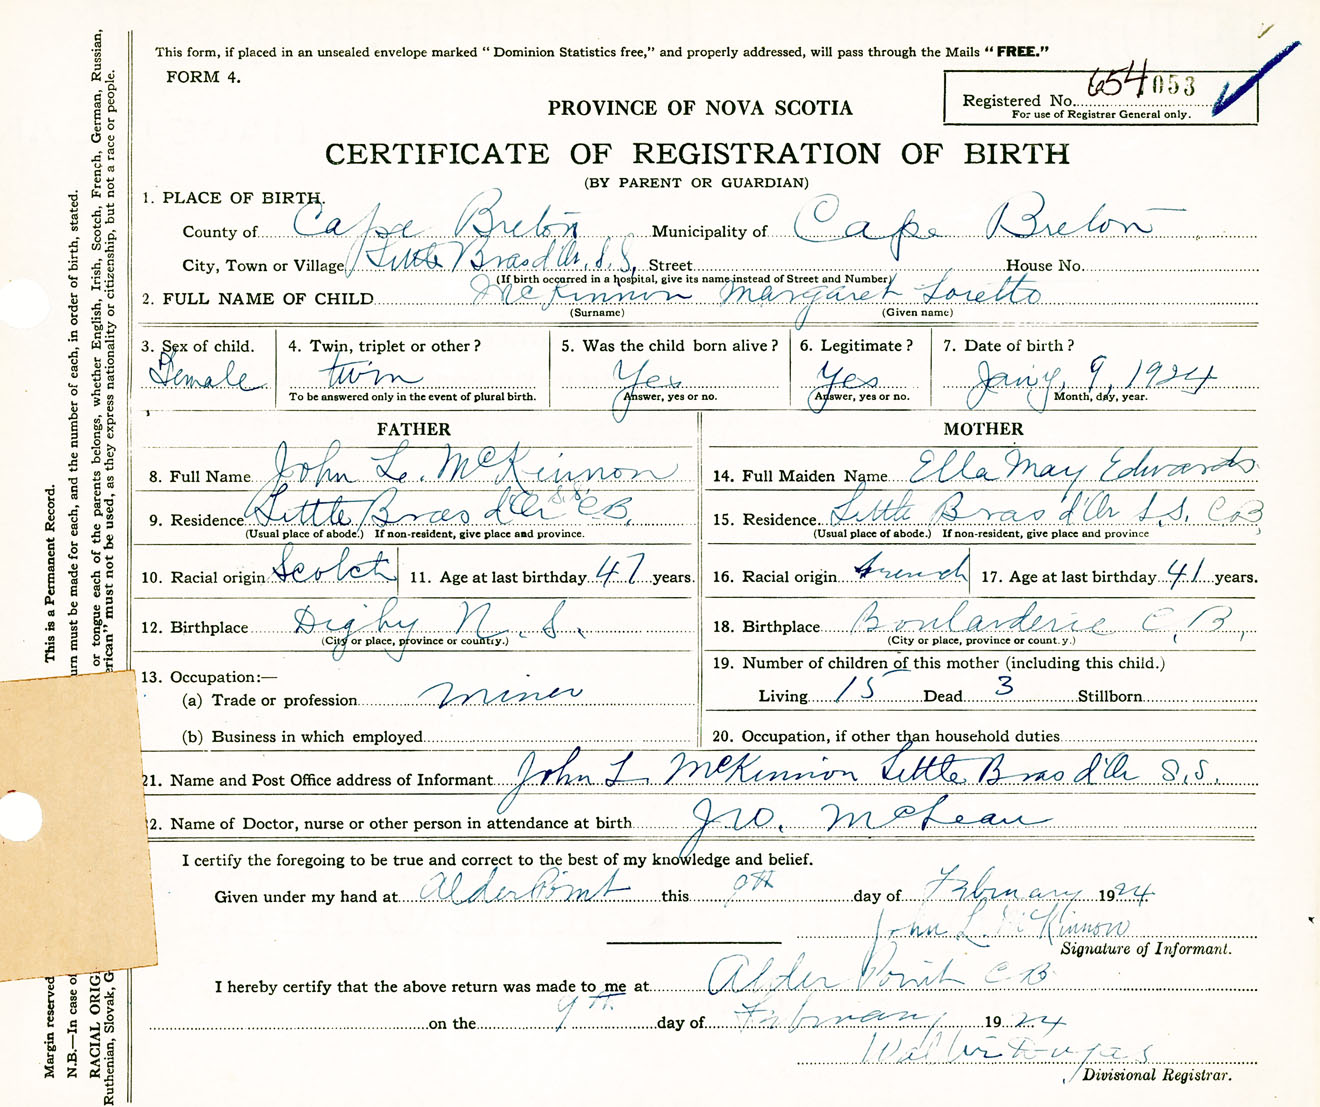 This form, if placed in an unsealed envelope marked " Dominion Statistics free," and properly addressed, will pass through the Mails "FREE."
FORM 4.
Registered No. 654 053
For use of Registrar General only.
PROVINCE OF NOVA SCOTIA
CERTIFICATE OF REGISTRATION OF BIRTH
(BY PARENT OR GUARDIAN)
1. PLACE OF BIRTH.
County of Cape Breton Municipality of Cape Breton
City, Town or Village Little Bras d'Or. S.S. Street House No.
(If birth occurred in a hospital, give its name instead of Street and Number)
2. FULL NAME OF CHILD McKinnon Margaret Loretto
(Surname) (Given name)
3. Sex of child. 4. Twin, triplet or other? 5. Was the child born alive? 6. Legitimate? 7. Date of birth?
Female twin Yes Yes Jany, 9, 1924
To be answered only in the event of plural birth. Answer, yes or no. Answer, yes or no. Month, day, year.
FATHER MOTHER
8. Full Name John L. McKinnon 14. Full Maiden Name Ella May Edwards
9. Residence Little Bras d'Or S.S. C.B. 15. Residence Little Bras d'Or S.S. C.B.
(Usual place of abode.) If non-resident, give place and province. (Usual place of abode.) If non-resident, give place and province
10. Racial origin Scotch 11. Age at last birthday 47 years. 16. Racial origin French 17. Age at last birthday 41 years.
12. Birthplace Digby N. S. 18. Birthplace Boularderie C. B.
(City or place, province or country.) (City or place, province or count.y.)
13. Occupation:— 19. Number of children of this mother (including this child.)
(a) Trade or profession miner Living 15 Dead 3 Stillborn
(b) Business in which employed 20. Occupation, if other than household duties
21. Name and Post Office address of Informant John L McKinnon Little Bras d'Or S.S.
2. Name of Doctor, nurse or other person in attendance at birth Jno. McLean
I certify the foregoing to be true and correct to the best of my knowledge and belief.
Given under my hand at Alder Point this 9th day of February 1924
John L. McKinnon
Signature of Informant.
I hereby certify that the above return was made to me at Alder Point C.B
on the 9th day of February 1924
Divisional Registrar.
Margin reserved
This is a Permanent Record.
N.B.—In case of
urn must be made for each, and the number of each, in order of birth, stated.
RACIAL ORIG
or tongue each of the parents belongs, whether English, Irish, Scotch, French, German, Russian,
Ruthenian, Slovak, G
erican" must not be used, as they express nationality or citizenship, but not a race or people.